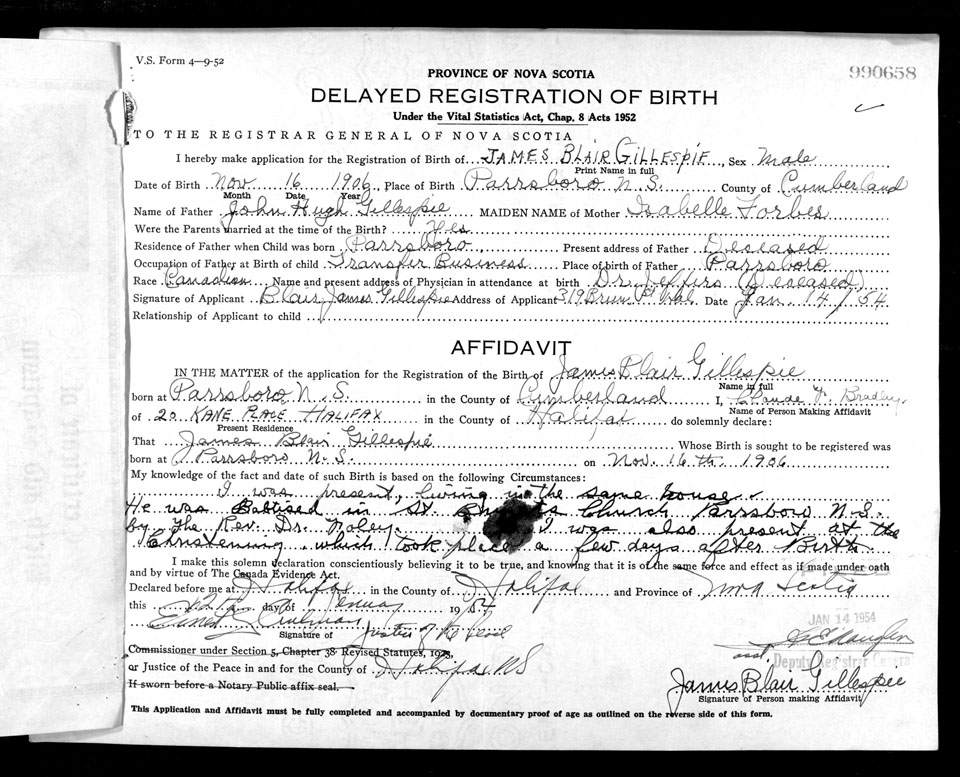 V.S. Form 4—9-52
990658
PROVINCE OF NOVA SCOTIA
DELAYED REGISTRATION OF BIRTH
Under the Vital Statistics Act, Chap. 8 Acts 1952
TO THE REGISTRAR GENERAL OF NOVA SCOTIA
I hereby make application for the Registration of Birth of JAMES BLAIR GILLESPIE, Sex Male
Print Name in full
Date of Birth Nov. 16 1906, Place of Birth Parrsboro N.S. County of Cumberland
Month Date Year
Name of Father John Hugh Gillespie MAIDEN NAME of Mother Isabelle Forbes
Were the Parents married at the time of the Birth? Yes
Residence of Father when Child was born Parrsboro Present address of Father Deceased
Occupation of Father at Birth of child Transfer Business Place of birth of Father Parrsboro
Race Canadian Name and present address of Physician in attendance at birth Dr. Jeffers (Deceased)
Signature of Applicant Blair James Gillespie Address of Applicant 319 Date Jan. 14/54
Relationship of Applicant to child
AFFIDAVIT
IN THE MATTER of the application for the Registration of the Birth of James Blair Gillespie
Name in full
born at Parrsboro N.S. in the County of Cumberland I, Claude Bradley
Name of Person Making Affidavit
of 20 KANE PLACE HALIFAX in the County of Halifax do solemnly declare:
Present Residence
That James Blair Gillespie Whose Birth is sought to be registered was
born at Parrsboro N.S. on Nov. 16th 1906
My knowledge of the fact and date of such Birth is based on the following Circumstances:
I was present, living in the same house.
He was Babtised in St. Church Parrsboro N.S.
by The Rev. Dr. I was also present at the
Christenning which took place a few days after Birth.
I make this solemn declaration conscientiously believing it to be true, and knowing that it is of the same force and effect as if made under oath
and by virtue of The Canada Evidence Act.
Declared before me at Halifax in the County of Halifax and Province of Nova Scotia
this day of January 1954
JAN 14 1954
Signature of Justice of the Peace
Commissioner under Section 5, Chapter 38 Revised Statutes, 1923,
Deputy Registrar General
or Justice of the Peace in and for the County of Halifax NS
James Blair Gillespie
If sworn before a Notary Public affix seal,
Signature of Person making Affidavit
This Application and Affidavit must be fully completed and accompanied by documentary proof of age as outlined on the reverse side of this form.